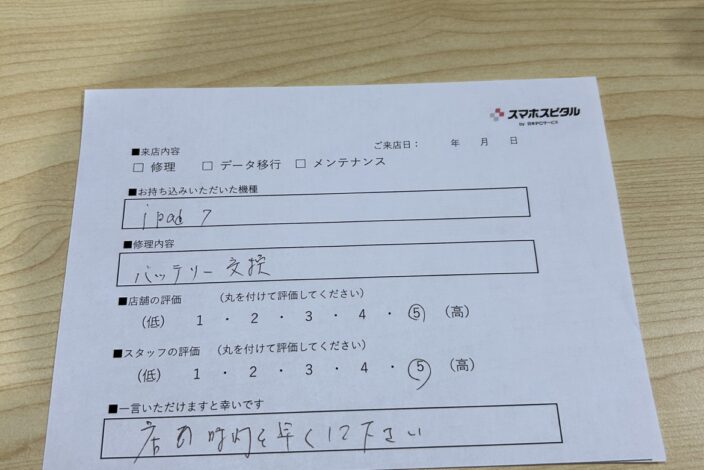 スマホスピタル
by 日本PCサービス
■来店内容
ご来店日： 年 月 日
□ 修理 □ データ移行 □ メンテナンス
■お持ち込みいただいた機種
ipad 7
■修理内容
バッテリー交換
■店舗の評価 （丸を付けて評価してください）
（低） 1 ・ 2 ・ 3 ・ 4 ・ 5 （高）
■スタッフの評価 （丸を付けて評価してください）
（低） 1 ・ 2 ・ 3 ・ 4 ・ 5 （高）
■一言いただけますと幸いです
店の時間を早くして下さい